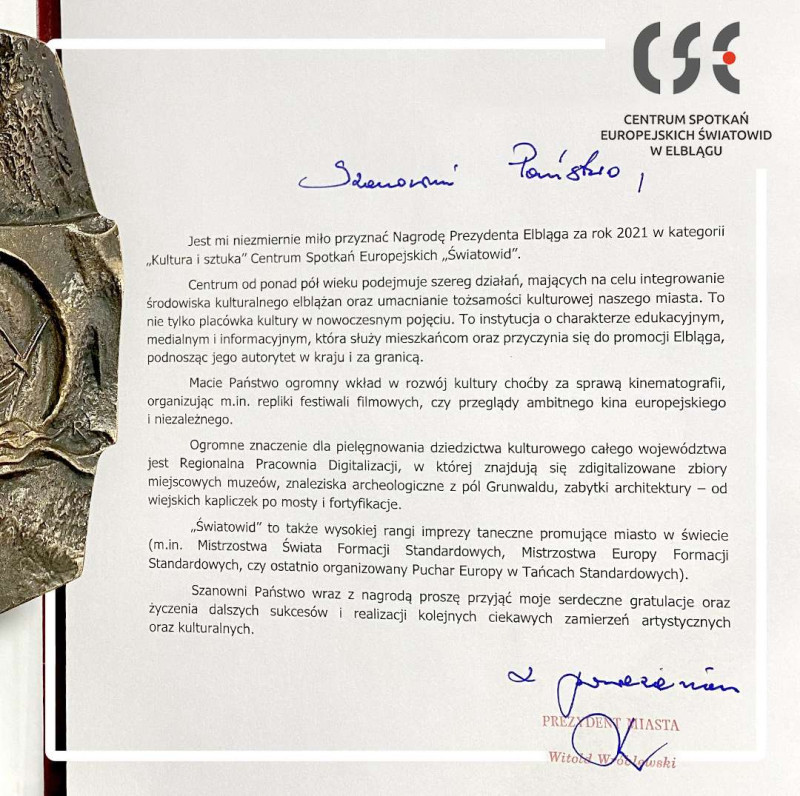 CSE
CENTRUM SPOTKAŃ
EUROPEJSKICH ŚWIATOWID
W ELBLĄGU
Szanowni Państwo,
Jest mi niezmiernie miło przyznać Nagrodę Prezydenta Elbląga za rok 2021 w kategorii
„Kultura i sztuka" Centrum Spotkań Europejskich „Światowid".
Centrum od ponad pół wieku podejmuje szereg działań, mających na celu integrowanie
środowiska kulturalnego elblążan oraz umacnianie tożsamości kulturowej naszego miasta. To
nie tylko placówka kultury w nowoczesnym pojęciu. To instytucja o charakterze edukacyjnym,
medialnym i informacyjnym, która służy mieszkańcom oraz przyczynia się do promocji Elbląga,
podnosząc jego autorytet w kraju i za granicą.
Macie Państwo ogromny wkład w rozwój kultury choćby za sprawą kinematografii,
organizując m.in. repliki festiwali filmowych, czy przeglądy ambitnego kina europejskiego
i niezależnego.
Ogromne znaczenie dla pielęgnowania dziedzictwa kulturowego całego województwa
jest Regionalna Pracownia Digitalizacji, w której znajdują się zdigitalizowane zbiory
miejscowych muzeów, znaleziska archeologiczne z pól Grunwaldu, zabytki architektury – od
wiejskich kapliczek po mosty i fortyfikacje.
„Światowid" to także wysokiej rangi imprezy taneczne promujące miasto w świecie
(m.in. Mistrzostwa Świata Formacji Standardowych, Mistrzostwa Europy Formacji
Standardowych, czy ostatnio organizowany Puchar Europy w Tańcach Standardowych).
Szanowni Państwo wraz z nagrodą proszę przyjąć moje serdeczne gratulacje oraz
życzenia dalszych sukcesów i realizacji kolejnych ciekawych zamierzeń artystycznych
oraz kulturalnych.
z poważaniem
PREZYDENT MIASTA
Witold Wróblewski